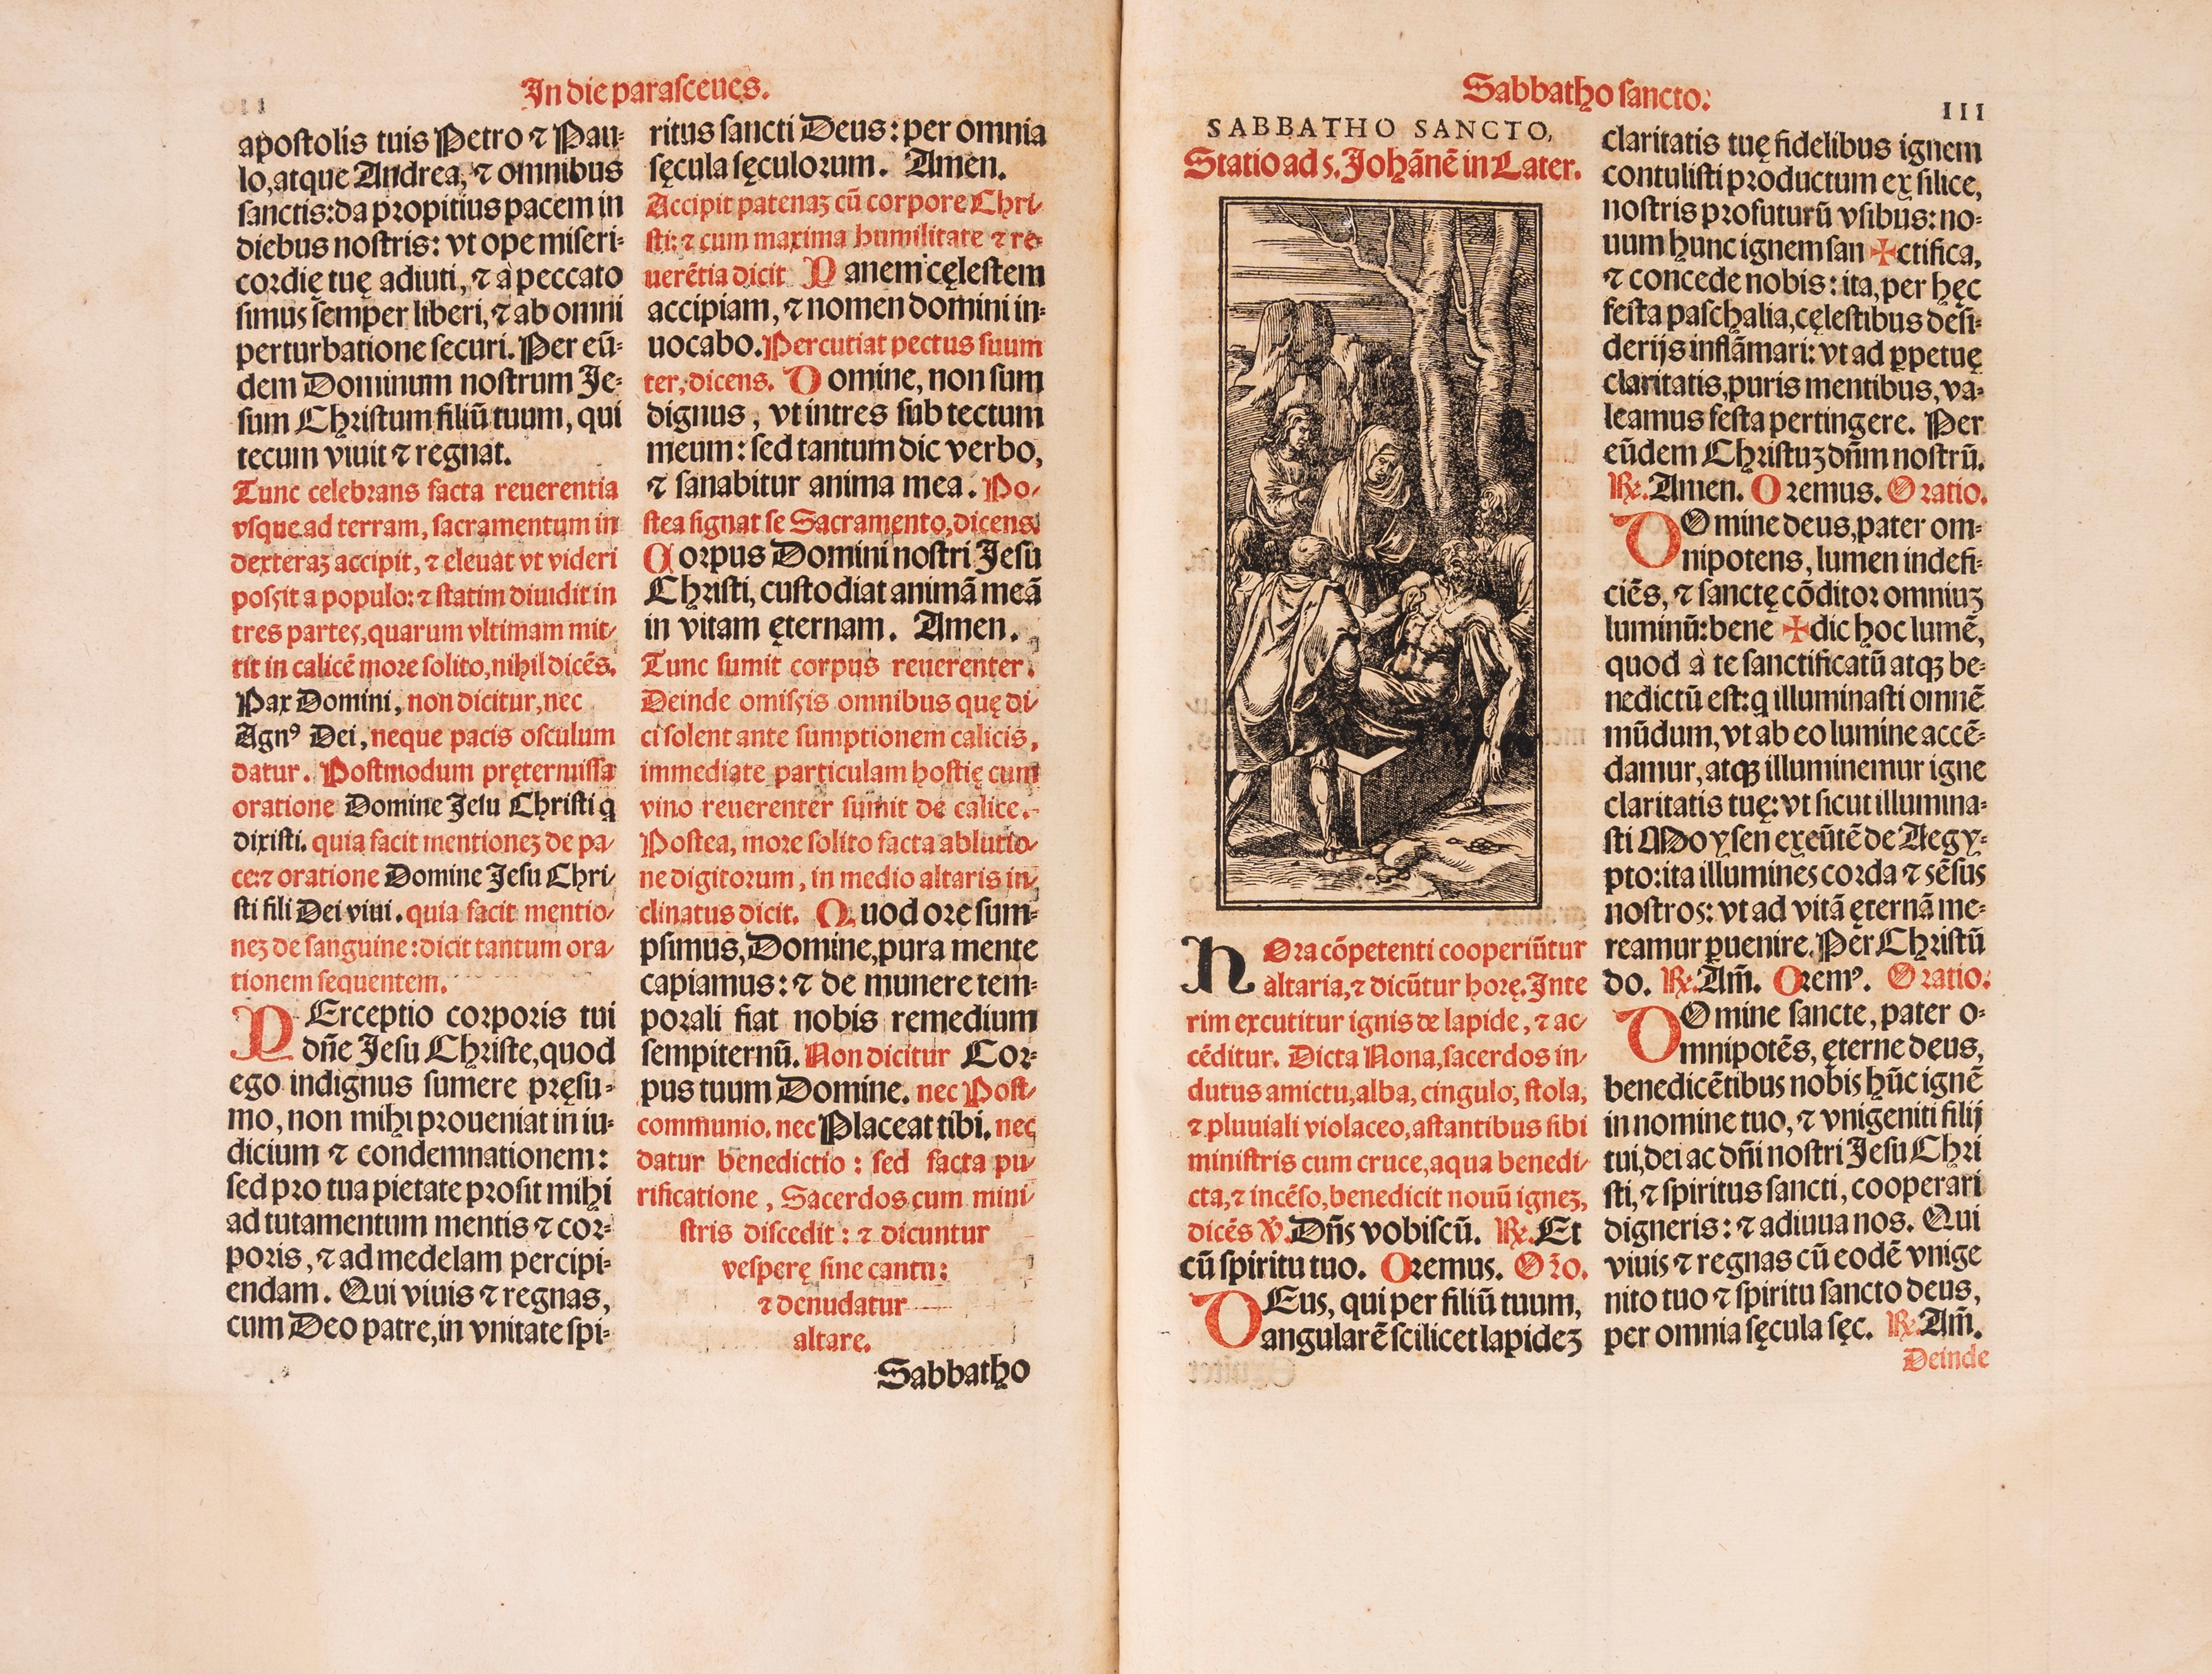 In die parasceues.
110
apostolis tuis Petro ⁊ Pau⸗
lo, atque Andrea, ⁊ omnibus
sanctis: da propitius pacem in
diebus nostris: vt ope miseri⸗
cordię tuę adiuti, ⁊ à peccato
simus semper liberi, ⁊ ab omni
perturbatione securi. Per eū⸗
dem Dominum nostrum Je⸗
sum Christum filiū tuum, qui
tecum viuit ⁊ regnat.
Tunc celebrans facta reuerentia
vsque ad terram, sacramentum in
dexteraʒ accipit, ⁊ eleuat vt videri
possit a populo: ⁊ statim diuidit in
tres partes, quarum vltimam mit⸗
tit in calicē more solito, nihil dicēs.
Pax Domini, non dicitur, nec
Agnꝰ Dei, neque pacis osculum
datur. Postmodum pręter missa
oratione Domine Jesu Christi q
dixisti. quia facit mentioneʒ de pa⸗
ce: ⁊ oratione Domine Jesu Chri⸗
sti fili Dei viui. quia facit mentio⸗
neʒ de sanguine: dicit tantum ora⸗
tionem sequentem.
PErceptio corporis tui
dn̄e Jesu Christe, quod
ego indignus sumere pręsu⸗
mo, non mihi proueniat in iu⸗
dicium ⁊ condemnationem:
sed pro tua pietate prosit mihi
ad tutamentum mentis ⁊ cor⸗
poris, ⁊ ad medelam percipi⸗
endam. Qui viuis ⁊ regnas,
cum Deo patre, in vnitate spi⸗
ritus sancti Deus: per omnia
sęcula sęculorum. Amen.
Accipit patenaʒ cū corpore Chri⸗
sti: ⁊ cum maxima humilitate ⁊ re⸗
uerētia dicit Panem cęlestem
accipiam, ⁊ nomen domini in⸗
uocabo. Percutiat pectus suum
ter, dicens. Domine, non sum
dignus, vt intres sub tectum
meum: sed tantum dic verbo,
⁊ sanabitur anima mea. Po⸗
stea signat se Sacramento, dicens
Corpus Domini nostri Jesu
Christi, custodiat animā meā
in vitam ęternam. Amen.
Tunc sumit corpus reuerenter.
Deinde omissis omnibus quę di⸗
ci solent ante sumptionem calicis,
immediate particulam hostię cum
vino reuerenter sumit de calice.
Postea, more solito facta ablutio⸗
ne digitorum, in medio altaris in⸗
clinatus dicit. Quod ore sum⸗
psimus, Domine, pura mente
capiamus: ⁊ de munere tem⸗
porali fiat nobis remedium
sempiternū. Non dicitur Cor⸗
pus tuum Domine. nec Post⸗
communio. nec Placeat tibi. nec
datur benedictio: sed facta pu⸗
rificatione, Sacerdos cum mini⸗
stris discedit: ⁊ dicuntur
vesperę sine cantu:
⁊ denudatur
altare.
Sabbatho
Sabbatho sancto.
III
SABBATHO SANCTO,
Statio ad s. Johānē in Later.
HOra cōpetenti cooperiūtur
altaria, ⁊ dicūtur horę. Inte
rim excutitur ignis de lapide, ⁊ ac⸗
cēditur. Dicta Nona, sacerdos in⸗
dutus amictu, alba, cingulo, stola,
⁊ pluuiali violaceo, astantibus sibi
ministris cum cruce, aqua benedi⸗
cta, ⁊ incēso, benedicit nouū igneʒ,
dicēs ℣. Dn̄s vobiscū. ℞. Et
cū spiritu tuo. Oremus. Oro.
DEus, qui per filiū tuum,
angularē scilicet lapideʒ
claritatis tuę fidelibus ignem
contulisti productum ex silice,
nostris profuturū vsibus: no⸗
uum hunc ignem san ✠ctifica,
⁊ concede nobis: ita, per hęc
festa paschalia, cęlestibus desi⸗
derijs inflāmari: vt ad ꝑpetuę
claritatis, puris mentibus, va⸗
leamus festa pertingere. Per
eūdem Christuʒ dn̄m nostrū.
℞. Amen. Oremus. Oratio.
DOmine deus, pater om⸗
nipotens, lumen indefi⸗
ciēs, ⁊ sanctę cōditor omniuʒ
luminū: bene ✠dic hoc lumē,
quod à te sanctificatū atqꝫ be⸗
nedictū est: q illuminasti omnē
mūdum, vt ab eo lumine accē⸗
damur, atqꝫ illuminemur igne
claritatis tuę: vt sicut illumina⸗
sti Moysen exeūtē de Aegy⸗
pto: ita illumines corda ⁊ sēsus
nostros: vt ad vitā ęternā me⸗
reamur ꝑuenire. Per Christū
do. ℞. Am̄. Oremꝰ. Oratio.
DOmine sancte, pater o⸗
mnipotēs, ęterne deus,
benedicētibus nobis hūc ignē
in nomine tuo, ⁊ vnigeniti filij
tui, dei ac dn̄i nostri Jesu Chri
sti, ⁊ spiritus sancti, cooperari
digneris: ⁊ adiuua nos. Qui
viuis ⁊ regnas cū eodē vnige
nito tuo ⁊ spiritu sancto deus,
per omnia sęcula sęc. ℞. Am̄.
Deinde